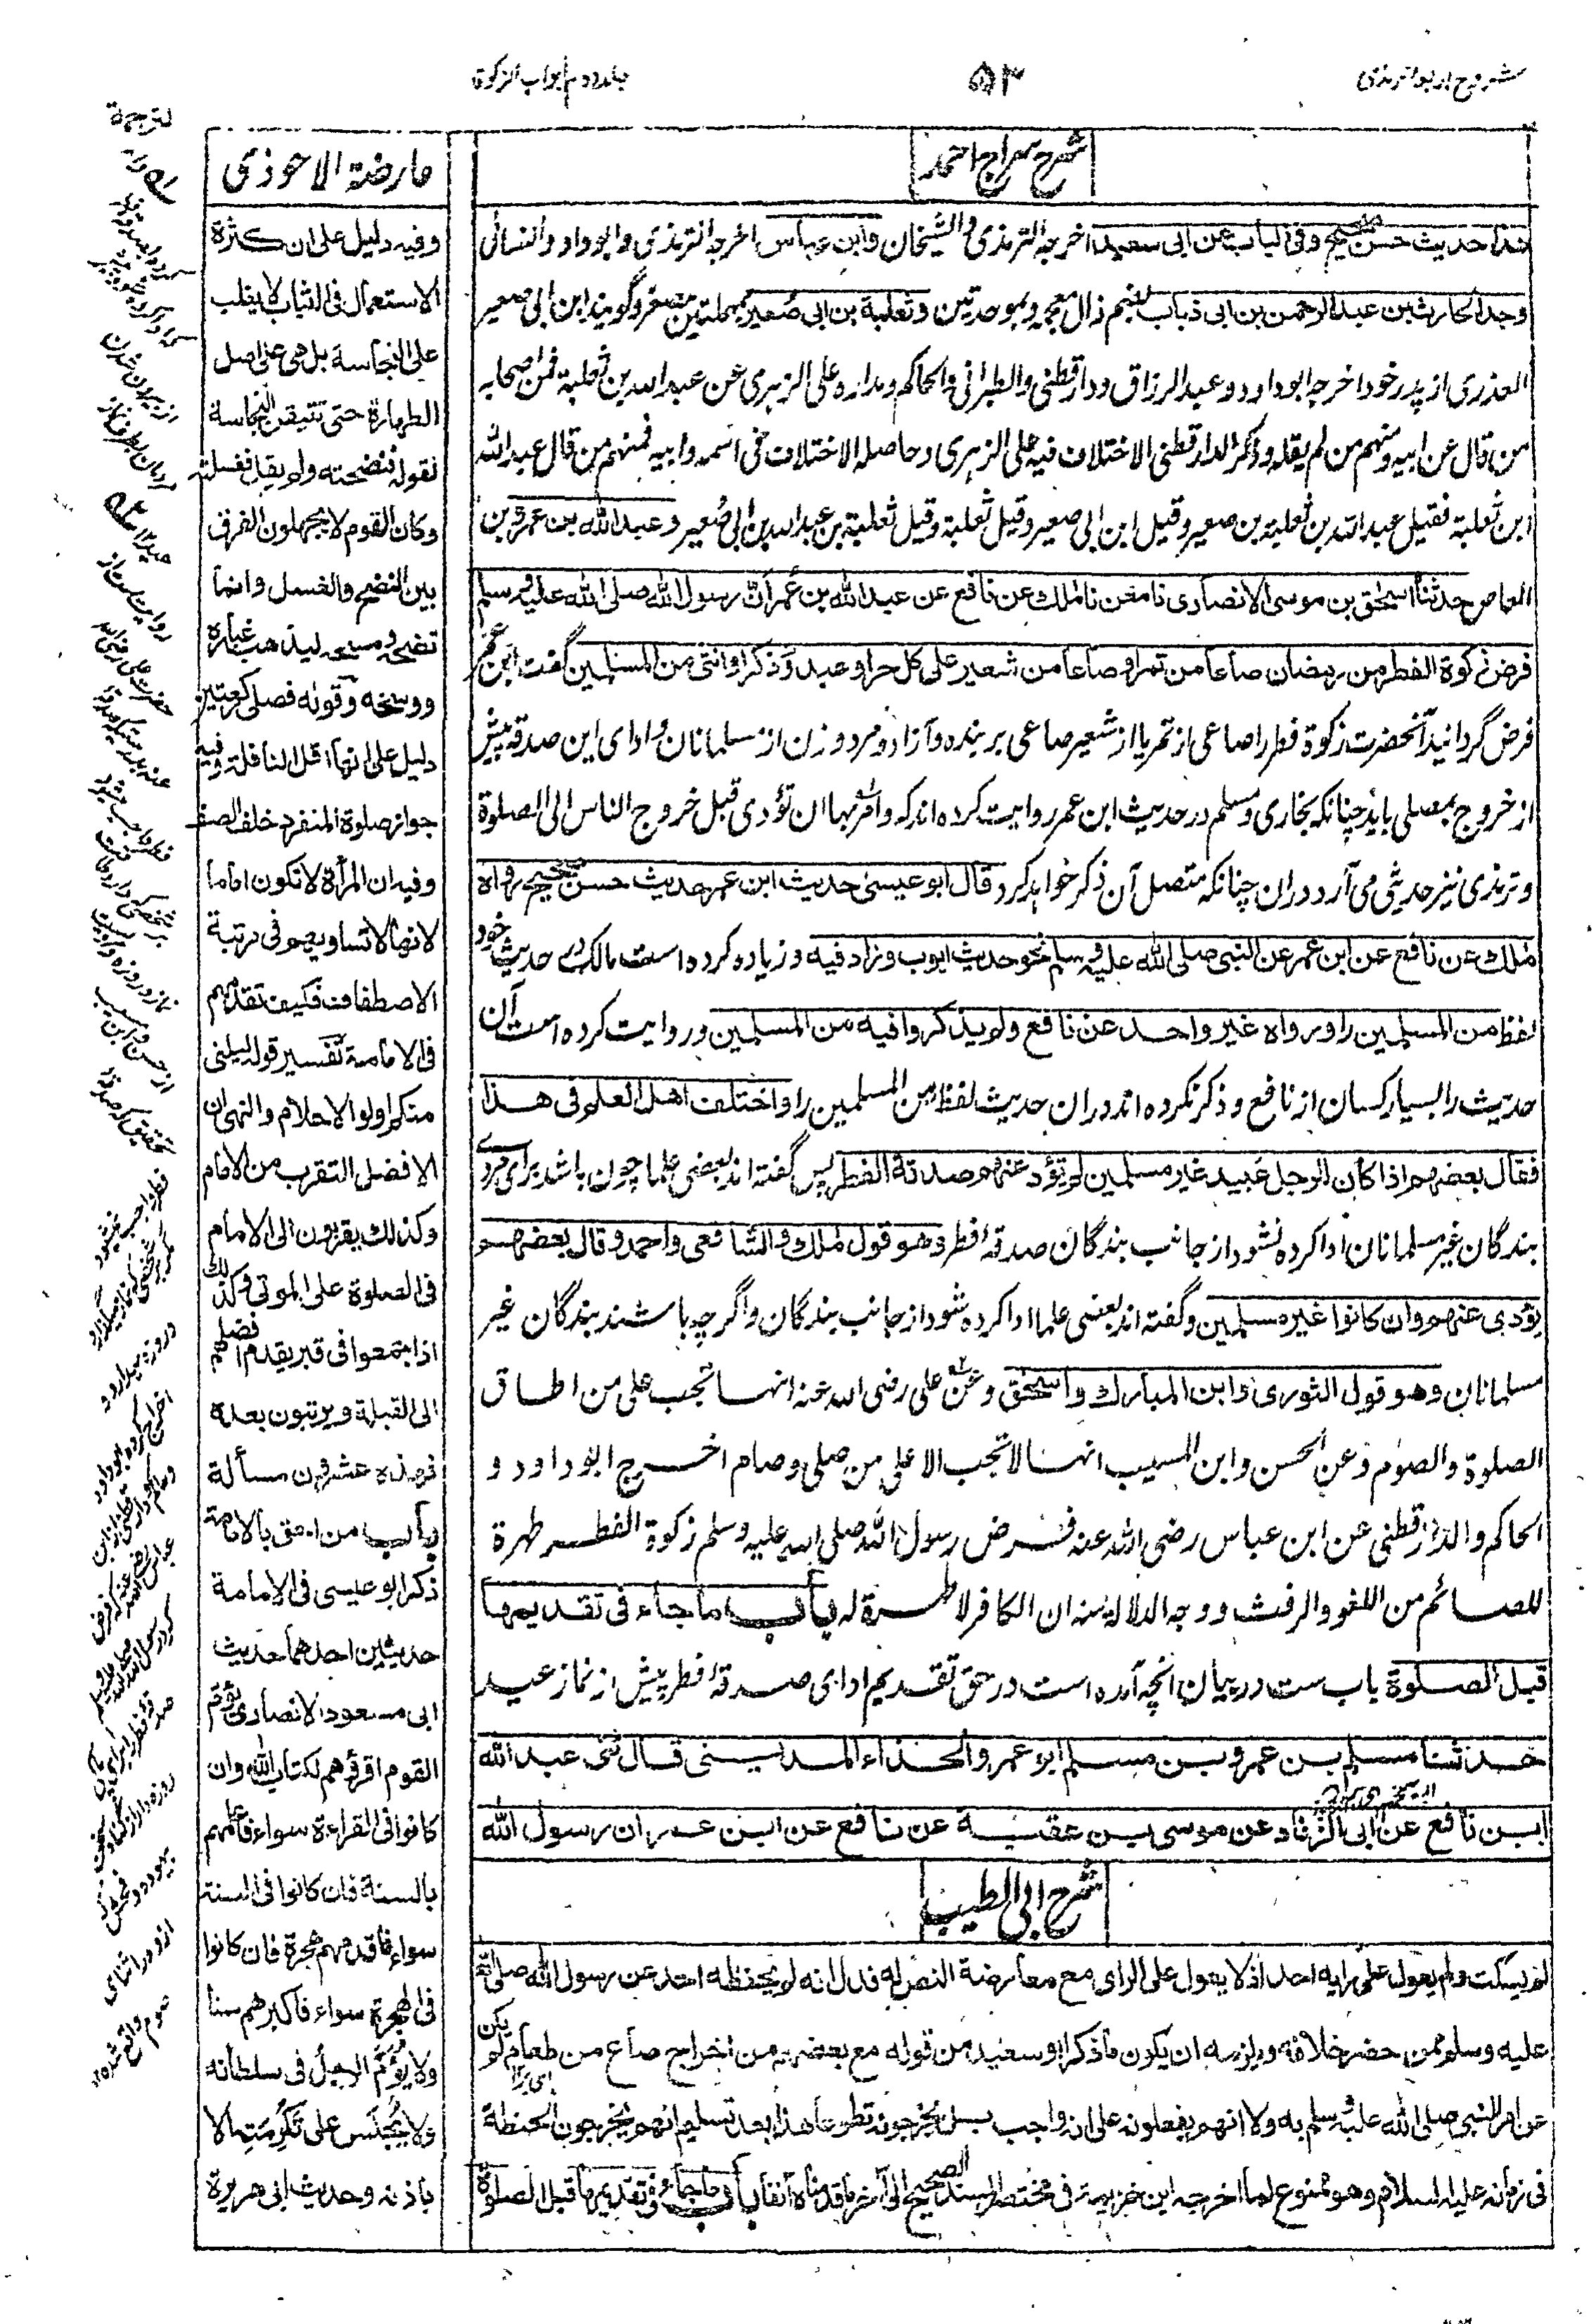 شروح اربعه ترمذی
۵۳
جلد دوم ابواب الزکوة
شرح سراج احمد
هذا حدیث حسن صحیح وفی الباب عن ابی سعید اخرجه الترمذی والشیخان وابن عباس اخرجه الترمذی وابو داود والنسائی
وجد الحارث بن عبد الرحمن بن ابی ذباب بضم ذال معجمه وبموحدتین وثعلبة بن ابی صعیر بمهملتین مصغر وگویند ابن ابی صعیر
العذری از پدر خود اخرجه ابو داود وعبد الرزاق ودارقطنی والطبرانی والحاکم ومداره علی الزهری عن عبد الله بن ثعلبة فمن اصحابه
من قال عن ابیه ومنهم من لم یقله وذکر الدارقطنی الاختلاف فیه علی الزهری وحاصله الاختلاف فی اسمه وابیه فمنهم من قال عبد الله
ابن ثعلبة فقیل عبد الله بن ثعلبة بن صعیر وقیل ابن ابی صعیر وقیل ثعلبة وقیل ثعلبة بن عبد الله بن ابی صعیر وعبد الله بن عمرو بن
العاص حدثنا اسحق بن موسی الانصاری نا معن نا ملک عن نافع عن عبد الله بن عمر ان رسول الله صلی الله علیه وسلم
فرض زکوة الفطر من رمضان صاعا من تمر او صاعا من شعیر علی کل حر او عبد وذکر او انثی من المسلمین گفت ابن عمر
فرض گردانید آنحضرت زکوة فطر را صاعی از تمر یا از شعیر صاعی بر بنده وآزاد ومرد وزن از مسلمانان وادای این صدقه پیش
از خروج بمصلی باید چنانکه بخاری ومسلم در حدیث ابن عمر روایت کرده اند که وامر بها ان تؤدی قبل خروج الناس الی الصلوة
وترمذی نیز حدیثی می آرد دران چنانکه متصل آن ذکر خواهد کرد قال ابو عیسی حدیث ابن عمر حدیث حسن صحیح رواه
ملک عن نافع عن ابن عمر عن النبی صلی الله علیه وسلم نحو حدیث ایوب وزاد فیه وزیاده کرده است مالک در حدیث خود
لفظ من المسلمین را ورواه غیر واحد عن نافع ولم یذکروا فیه من المسلمین وروایت کرده است آن
حدیث را بسیار کسان از نافع وذکر نکرده اند دران حدیث لفظ من المسلمین را واختلف اهل العلم فی هذا
فقال بعضهم اذا کان للرجل عبید غیر مسلمین لم یؤد عنهم صدقة الفطر پس گفته اند بعضی علما چون باشد برای مردے
بندگان غیر مسلمانان ادا کرده نشود از جانب بندگان صدقهٔ فطر وهو قول ملک والشافعی واحمد وقال بعضهم
یؤدی عنهم وان کانوا غیر مسلمین وگفته اند بعضی علما ادا کرده شود از جانب بندگان واگرچه باشند بندگان غیر
مسلمانان وهو قول الثوری وابن المبارک واسحق وعن علی رضی الله عنه انها تجب علی من اطاق
الصلوة والصوم وعن الحسن وابن المسیب انها لا تجب الا علی من صلی وصام اخرج ابو داود و
الحاکم والدارقطنی عن ابن عباس رضی الله عنه فرض رسول الله صلی الله علیه وسلم زکوة الفطر طهرة
للصائم من اللغو والرفث ووجه الدلالة منه ان الکافر لا طهرة له باب ما جاء فی تقدیمها
قبل الصلوة باب ست در بیان آنچه آمده است در حق تقدیم ادای صدقهٔ فطر پیش از نماز عید
حدثنا مسلم بن عمرو بن مسلم ابو عمرو الحذاء المدینی قال ثنی عبد الله
ابن نافع عن ابی الزناد عن موسی بن عقبة عن نافع عن ابن عمر ان رسول الله
شرح ابی الطیب
لم یسکت ولم یعول علی رایه احد اذ لا یعول علی الرای مع معارضة النص له فدل انه لم یحفظه احد عن رسول الله صلی الله
علیه وسلم ممن حضر خلافه ویلزمه ان یکون ما ذکر ابو سعید من قوله مع بعضهم من اخراج صاع من طعام لم یکن
عن امر النبی صلی الله علیه وسلم به ولا انهم یفعلونه علی انه واجب بل یخرجونه تطوعا هذا بعد تسلیم انهم یخرجون الحنطة
فی زمانه علیه السلام وهو ممنوع لما اخرجه ابن خزیمة فی مختصر المسند الصحیح الی آخر ما قدمناه آنفا باب ما جاء فی تقدیمها قبل الصلوة
عارضة الاحوذی
وفیه دلیل علی ان کثرة
الاستعمال فی الثیاب لا یغلب
علی النجاسة بل هی علی اصل
الطهارة حتی تتیقن النجاسة
لقوله فنضحته ولم یقل فغسلته
وکان القوم لا یجهلون الفرق
بین النضح والغسل وانما
نضحه ومسحه لیذهب غباره
ووسخه وقوله فصلی رکعتین
دلیل علی انها اقل النافلة وفیه
جواز صلوة المنفرد خلف الصف
وفیه ان المرأة لا تکون اماما
لانها لا تساویهم فی مرتبة
الاصطفاف فکیف تقدمهم
فی الامامة تفسیر قوله لیلنی
منکم اولو الاحلام والنهی ان
الافضل التقرب من الامام
وکذلک یقربون الی الامام
فی الصلوة علی الموتی وکذلک
اذا جمعوا فی قبر یقدم افضلهم
الی القبلة ویرتبون بعده
فهذه عشرون مسألة
باب من احق بالامامة
ذکر ابو عیسی فی الامامة
حدیثین احدهما حدیث
ابی مسعود الانصاری یؤم
القوم اقرؤهم لکتاب الله وان
کانوا فی القراءة سواء فاعلمهم
بالسنة فان کانوا فی السنة
سواء فاقدمهم هجرة فان کانوا
فی الهجرة سواء فاکبرهم سنا
ولا یؤم الرجل فی سلطانه
ولا یجلس علی تکرمته الا
باذنه وحدیث ابی هریرة